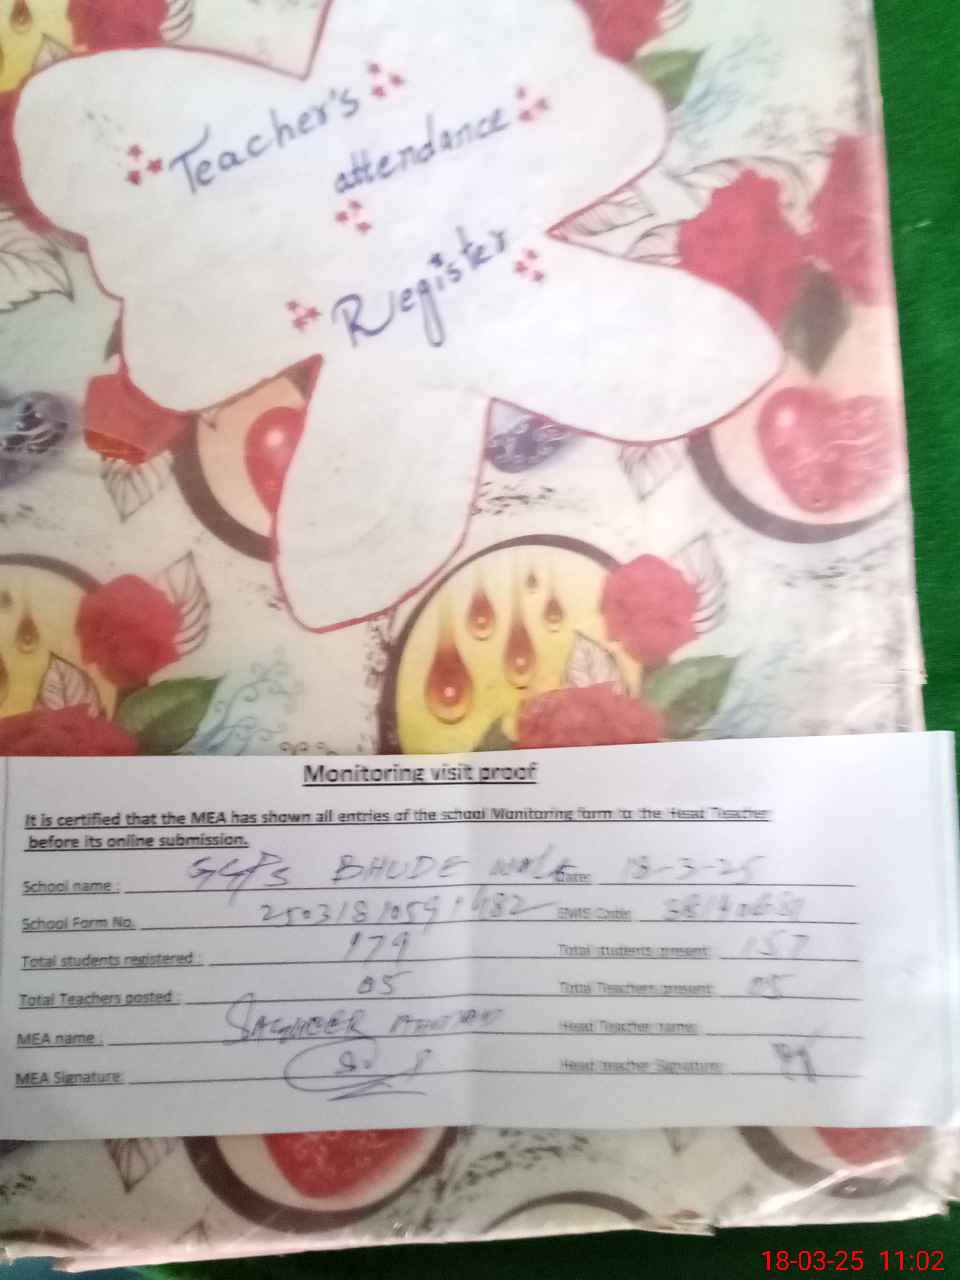 Teacher's
attendance
Register
Monitoring visit proof
It is certified that the MEA has shown all entries of the school Monitoring form to the Head Teacher
before its online submission.
School name : GGPS BHUDE WALE Date: 18-3-25
School Form No. EMIS Code:
Total students registered : 179 Total students present: 157
Total Teachers posted : 05 Total Teachers present: 05
MEA name : SAGHEER AHMAD Head Teacher name:
MEA Signature: Head teacher Signature:
18-03-25 11:02